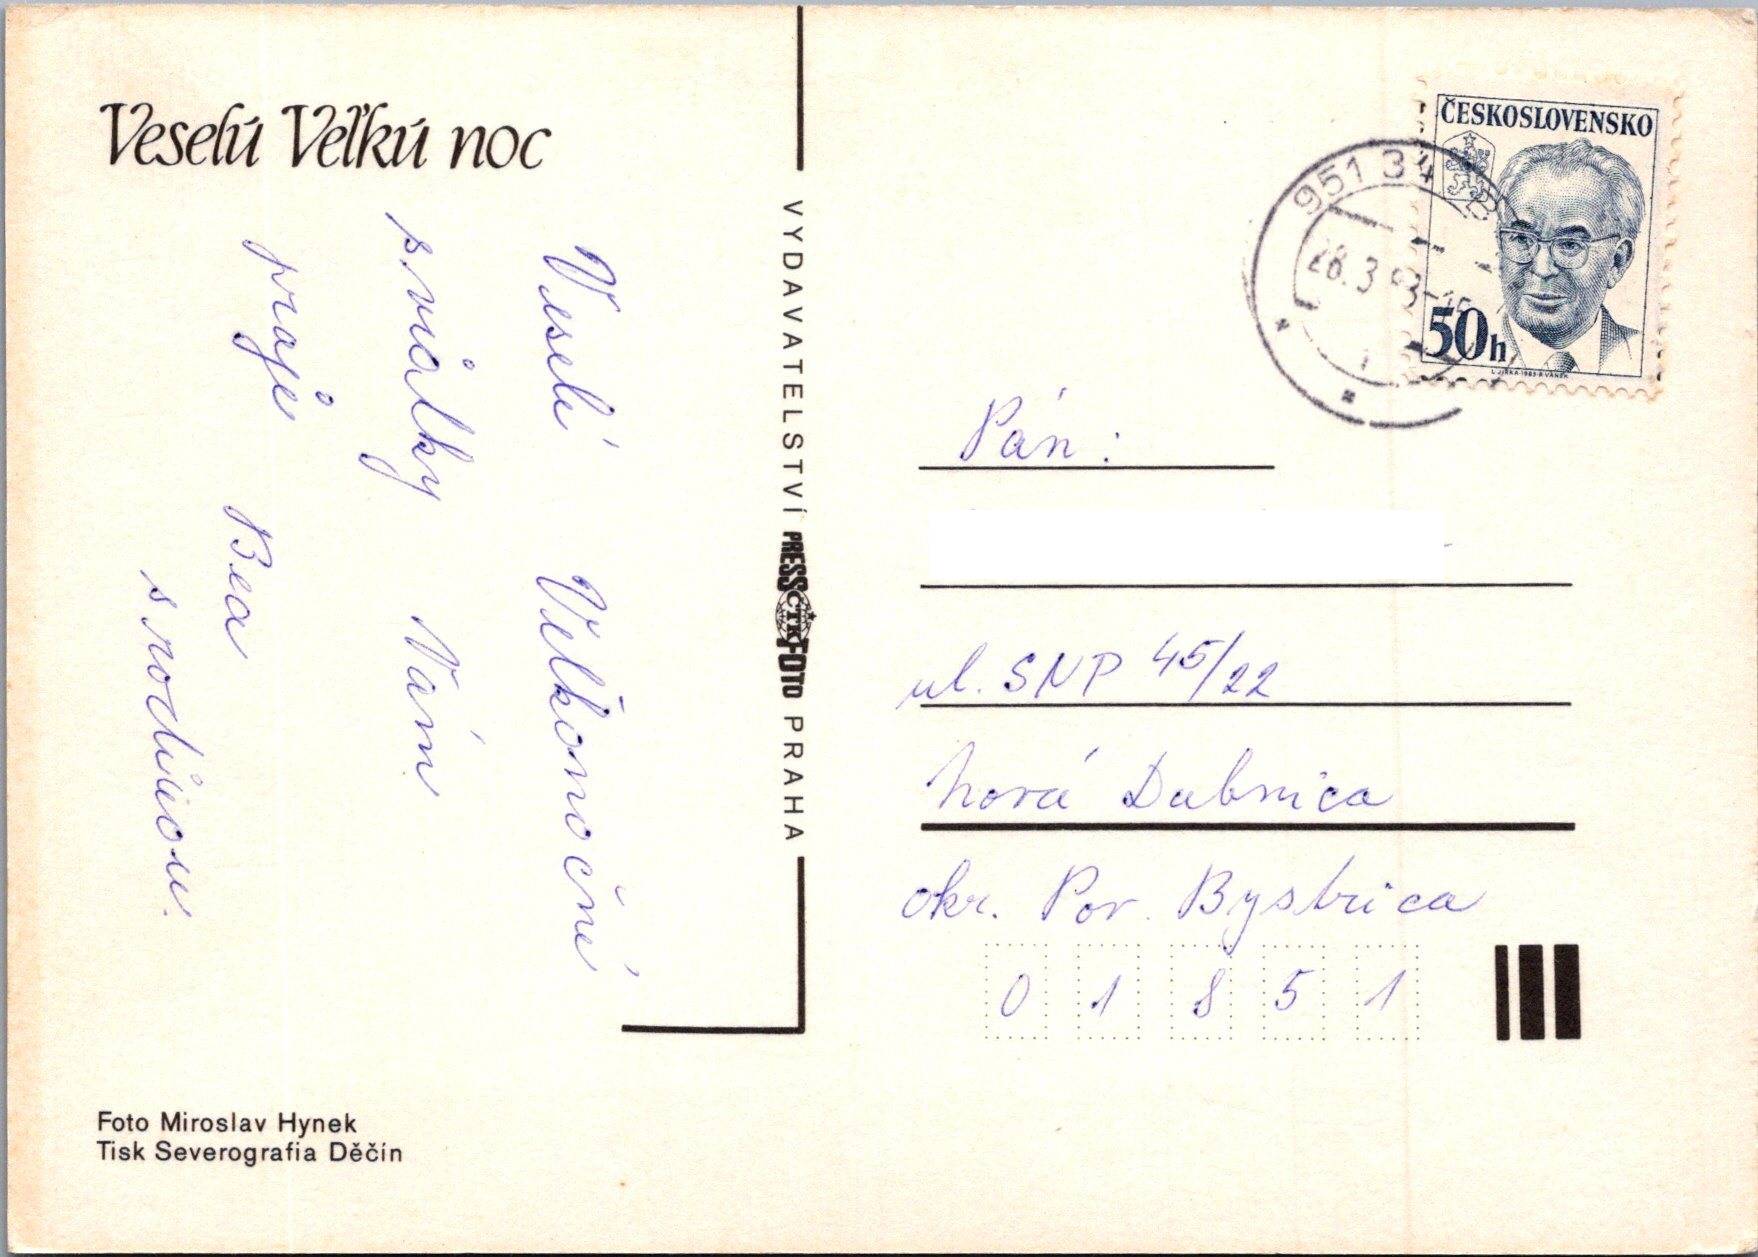 Veselú Veľkú noc
Veselé Veľkonočné
sviatky Vám
praje
Bea
s rodinou.
VYDAVATELSTVÍ PRESSFOTO PRAHA
ČTK
Foto Miroslav Hynek
Tisk Severografia Děčín
ČESKOSLOVENSKO
50h
L. JIRKA-1983-B. VANĚK
951 34
28.3
Pán:
ul. SNP 45/22
Nová Dubnica
okr. Pov. Bystrica
0 1 8 5 1